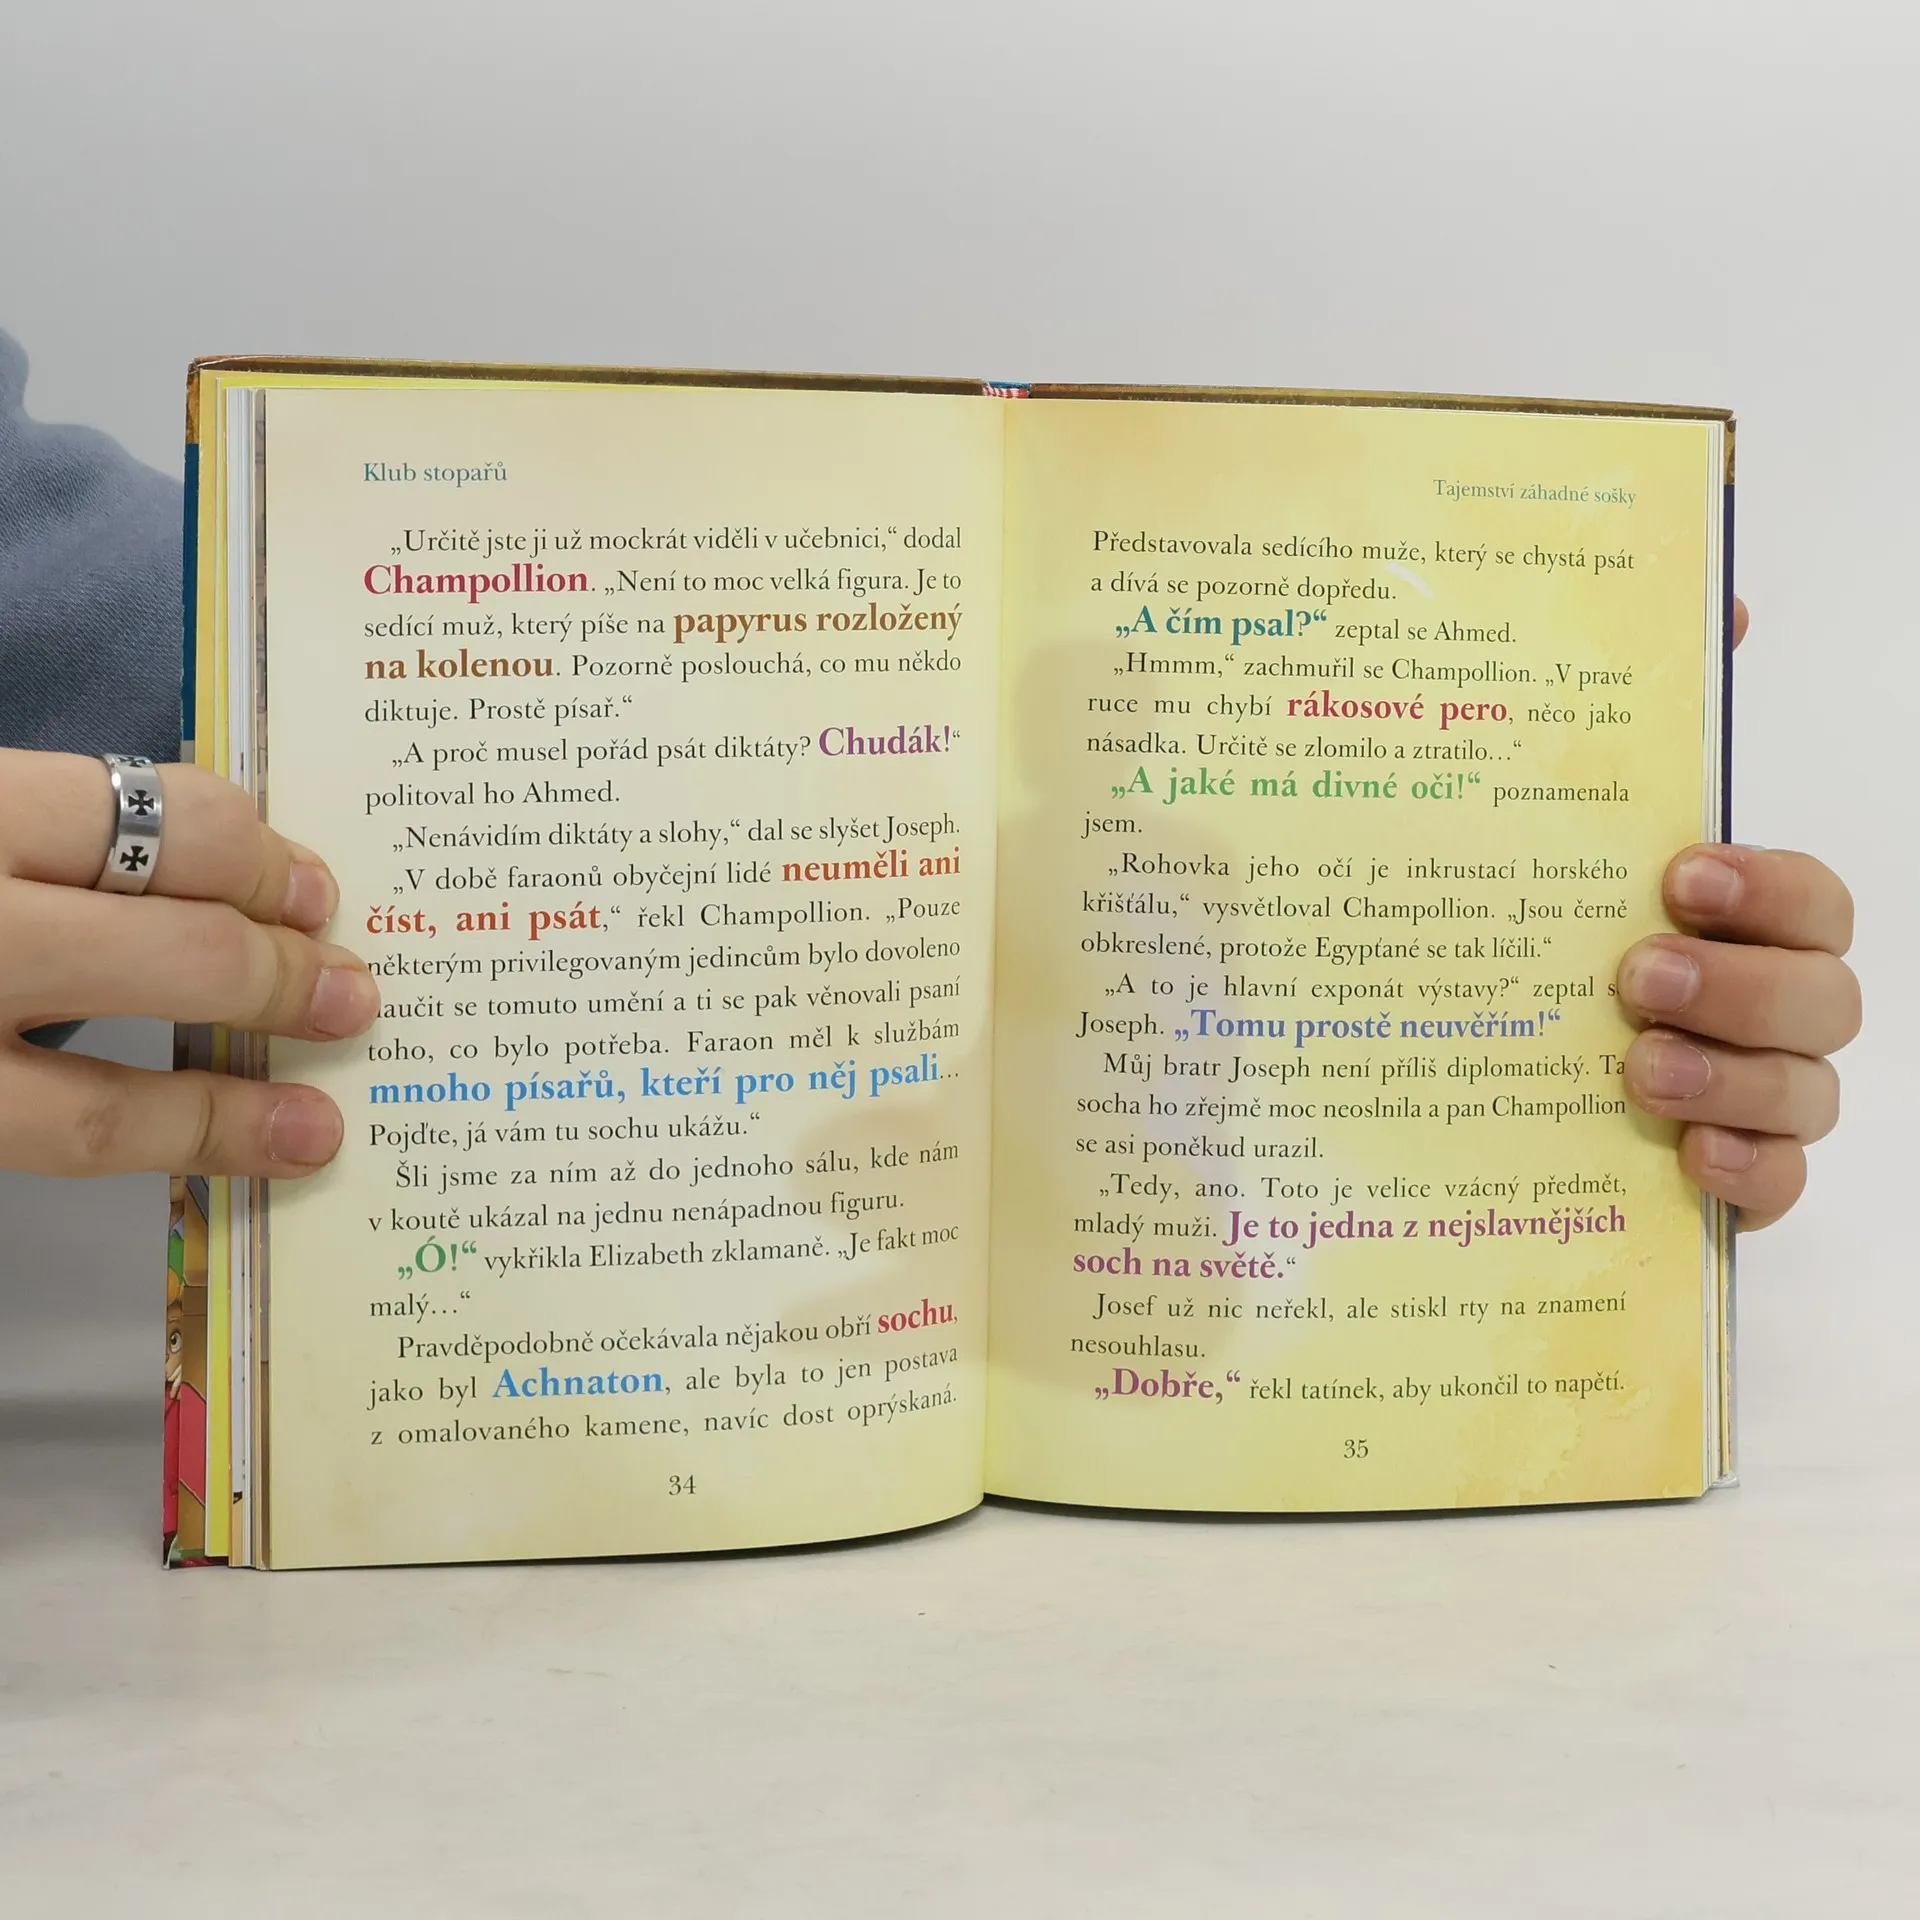 Klub stopařů
„Určitě jste ji už mockrát viděli v učebnici,“ dodal
Champollion. „Není to moc velká figura. Je to
sedící muž, který píše na papyrus rozložený
na kolenou. Pozorně poslouchá, co mu někdo
diktuje. Prostě písař.“
„A proč musel pořád psát diktáty? Chudák!“
politoval ho Ahmed.
„Nenávidím diktáty a slohy,“ dal se slyšet Joseph.
„V době faraonů obyčejní lidé neuměli ani
číst, ani psát,“ řekl Champollion. „Pouze
některým privilegovaným jedincům bylo dovoleno
naučit se tomuto umění a ti se pak věnovali psaní
toho, co bylo potřeba. Faraon měl k službám
mnoho písařů, kteří pro něj psali...
Pojďte, já vám tu sochu ukážu.“
Šli jsme za ním až do jednoho sálu, kde nám
v koutě ukázal na jednu nenápadnou figuru.
„Ó!“ vykřikla Elizabeth zklamaně. „Je fakt moc
malý...“
Pravděpodobně očekávala nějakou obří sochu,
jako byl Achnaton, ale byla to jen postava
z omalovaného kamene, navíc dost oprýskaná.
34
Tajemství záhadné sošky
Představovala sedícího muže, který se chystá psát
a dívá se pozorně dopředu.
„A čím psal?“ zeptal se Ahmed.
„Hmmm,“ zachmuřil se Champollion. „V pravé
ruce mu chybí rákosové pero, něco jako
násadka. Určitě se zlomilo a ztratilo...“
„A jaké má divné oči!“ poznamenala
jsem.
„Rohovka jeho očí je inkrustací horského
křišťálu,“ vysvětloval Champollion. „Jsou černě
obkreslené, protože Egypťané se tak líčili.“
„A to je hlavní exponát výstavy?“ zeptal se
Joseph. „Tomu prostě neuvěřím!“
Můj bratr Joseph není příliš diplomatický. Ta
socha ho zřejmě moc neoslnila a pan Champollion
se asi poněkud urazil.
„Tedy, ano. Toto je velice vzácný předmět,
mladý muži. Je to jedna z nejslavnějších
soch na světě.“
Josef už nic neřekl, ale stiskl rty na znamení
nesouhlasu.
„Dobře,“ řekl tatínek, aby ukončil to napětí.
35